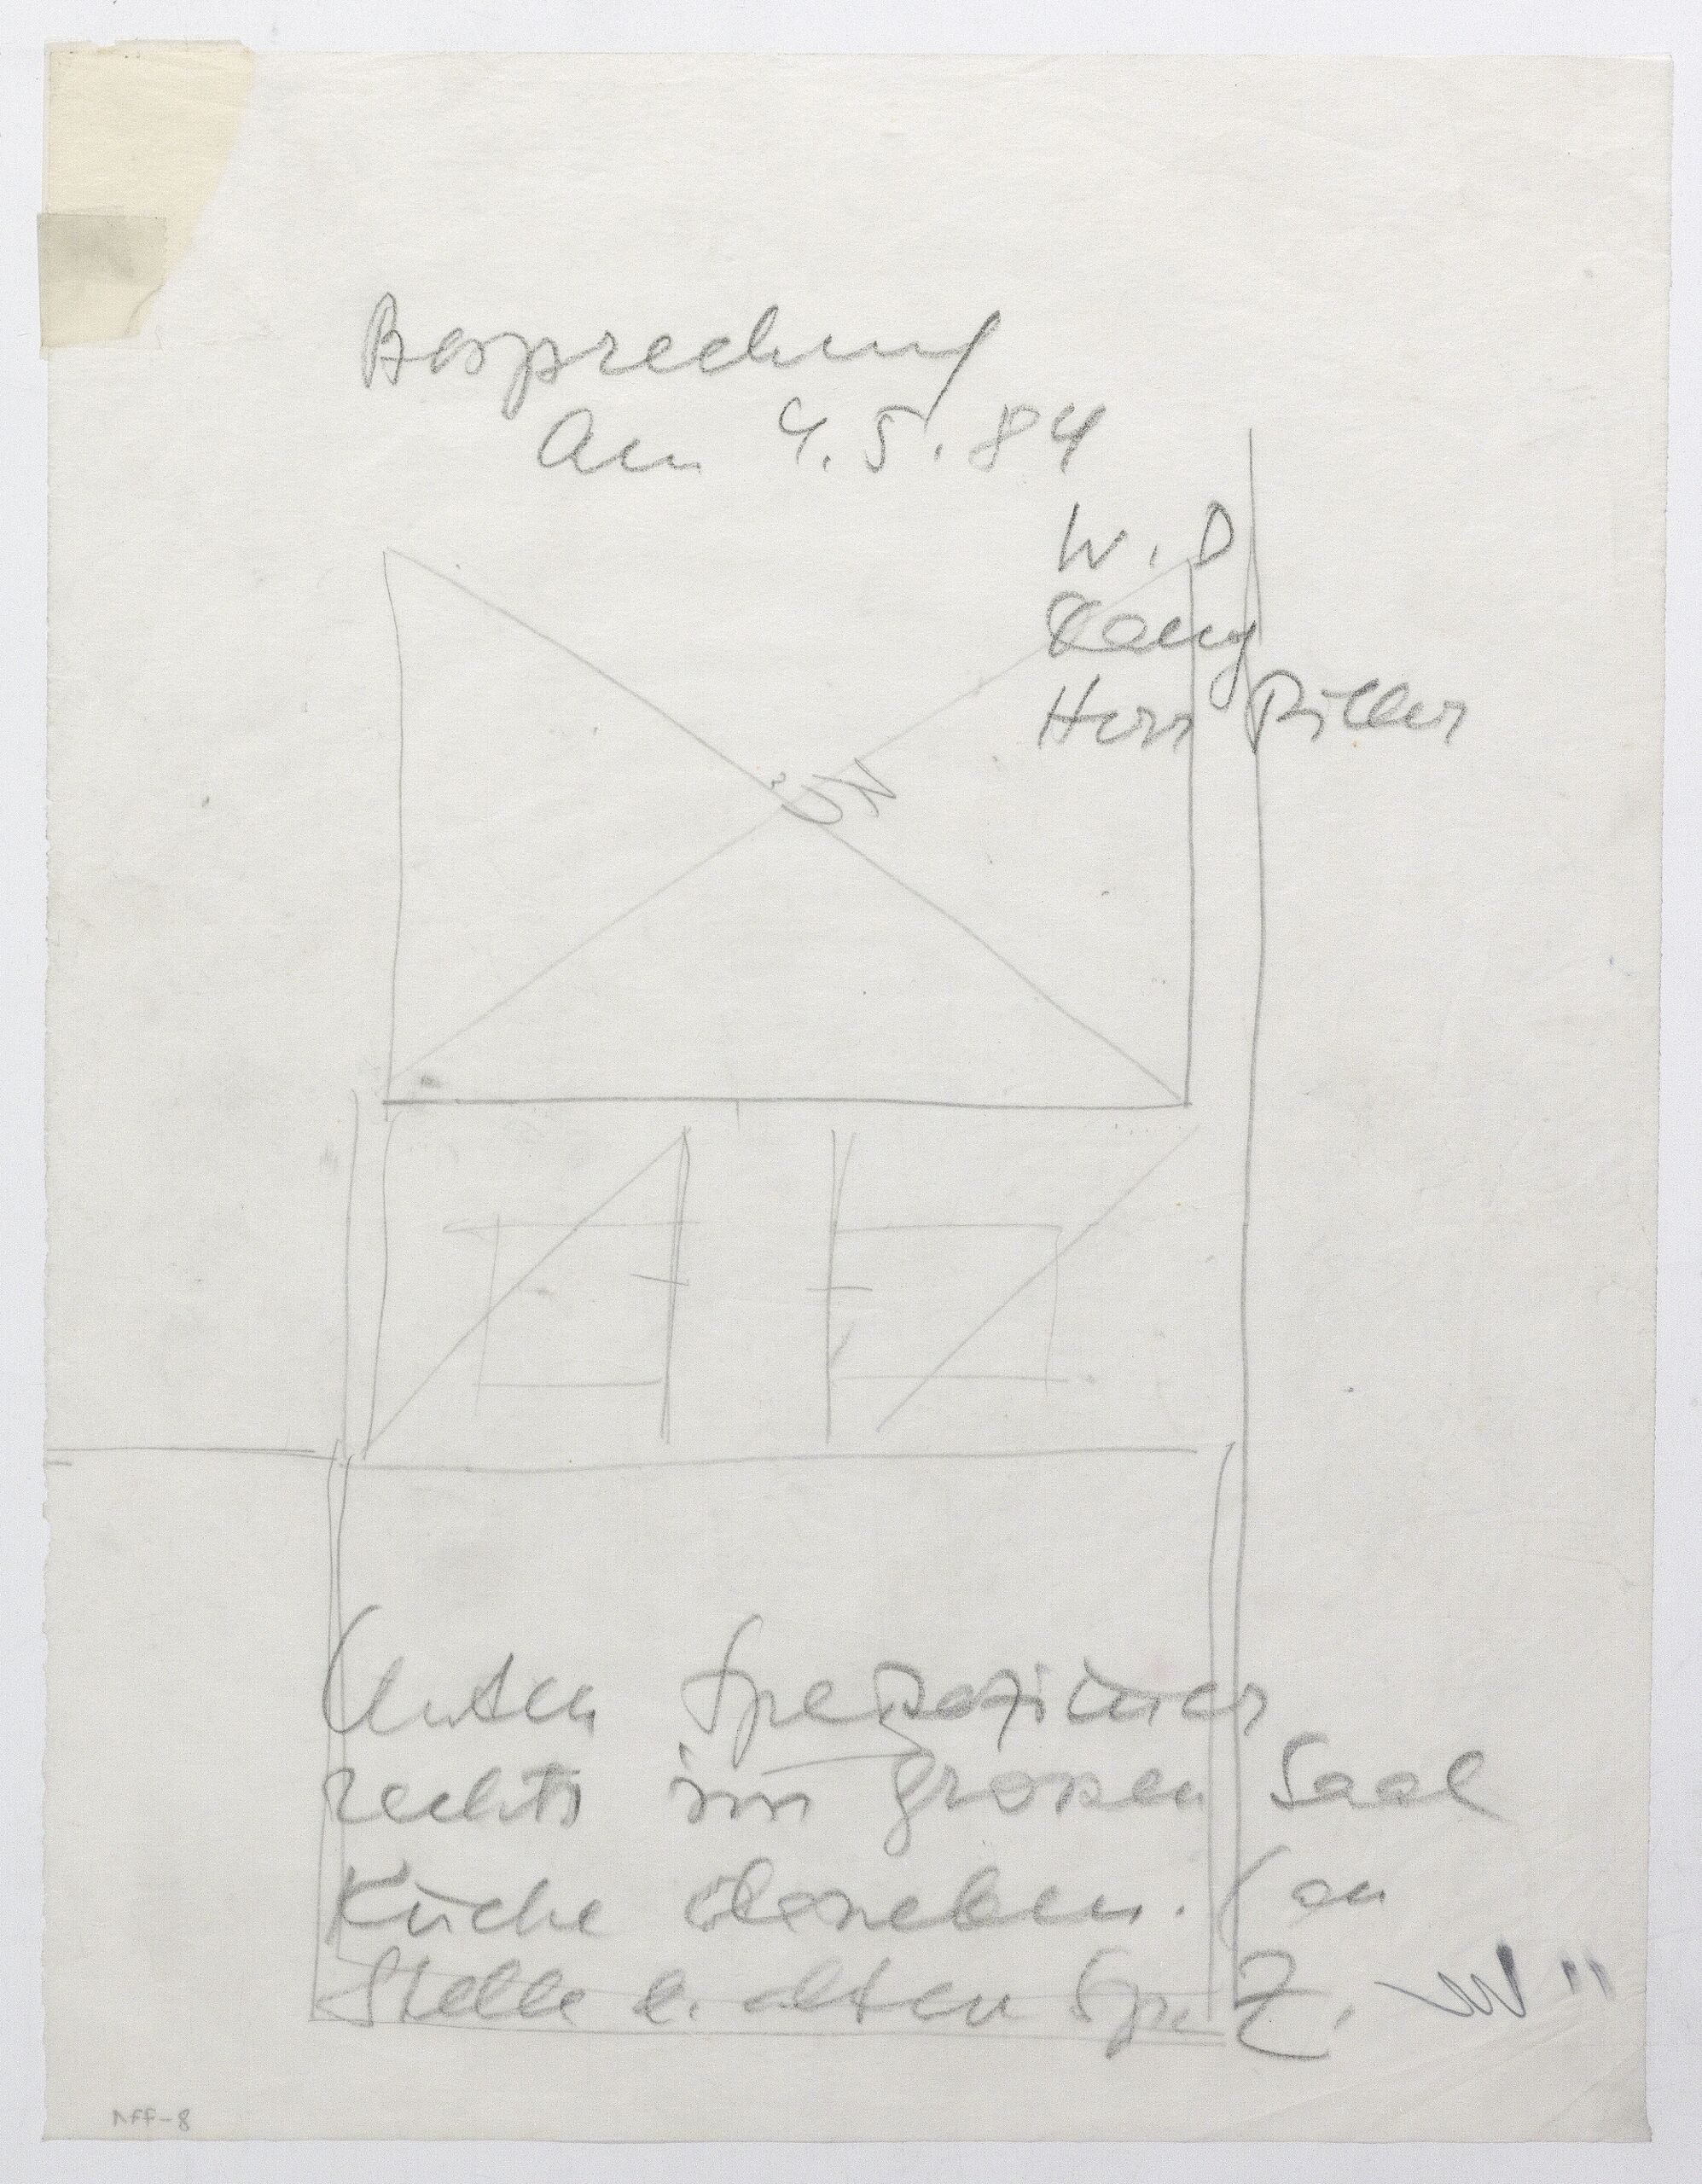 Besprechung
am 4.5.84
W. D
Herr Piller
Unten Speisezimer
rechts im grosen Saal
Küche daneben. (an
Stelle d. alten Sp. Z.